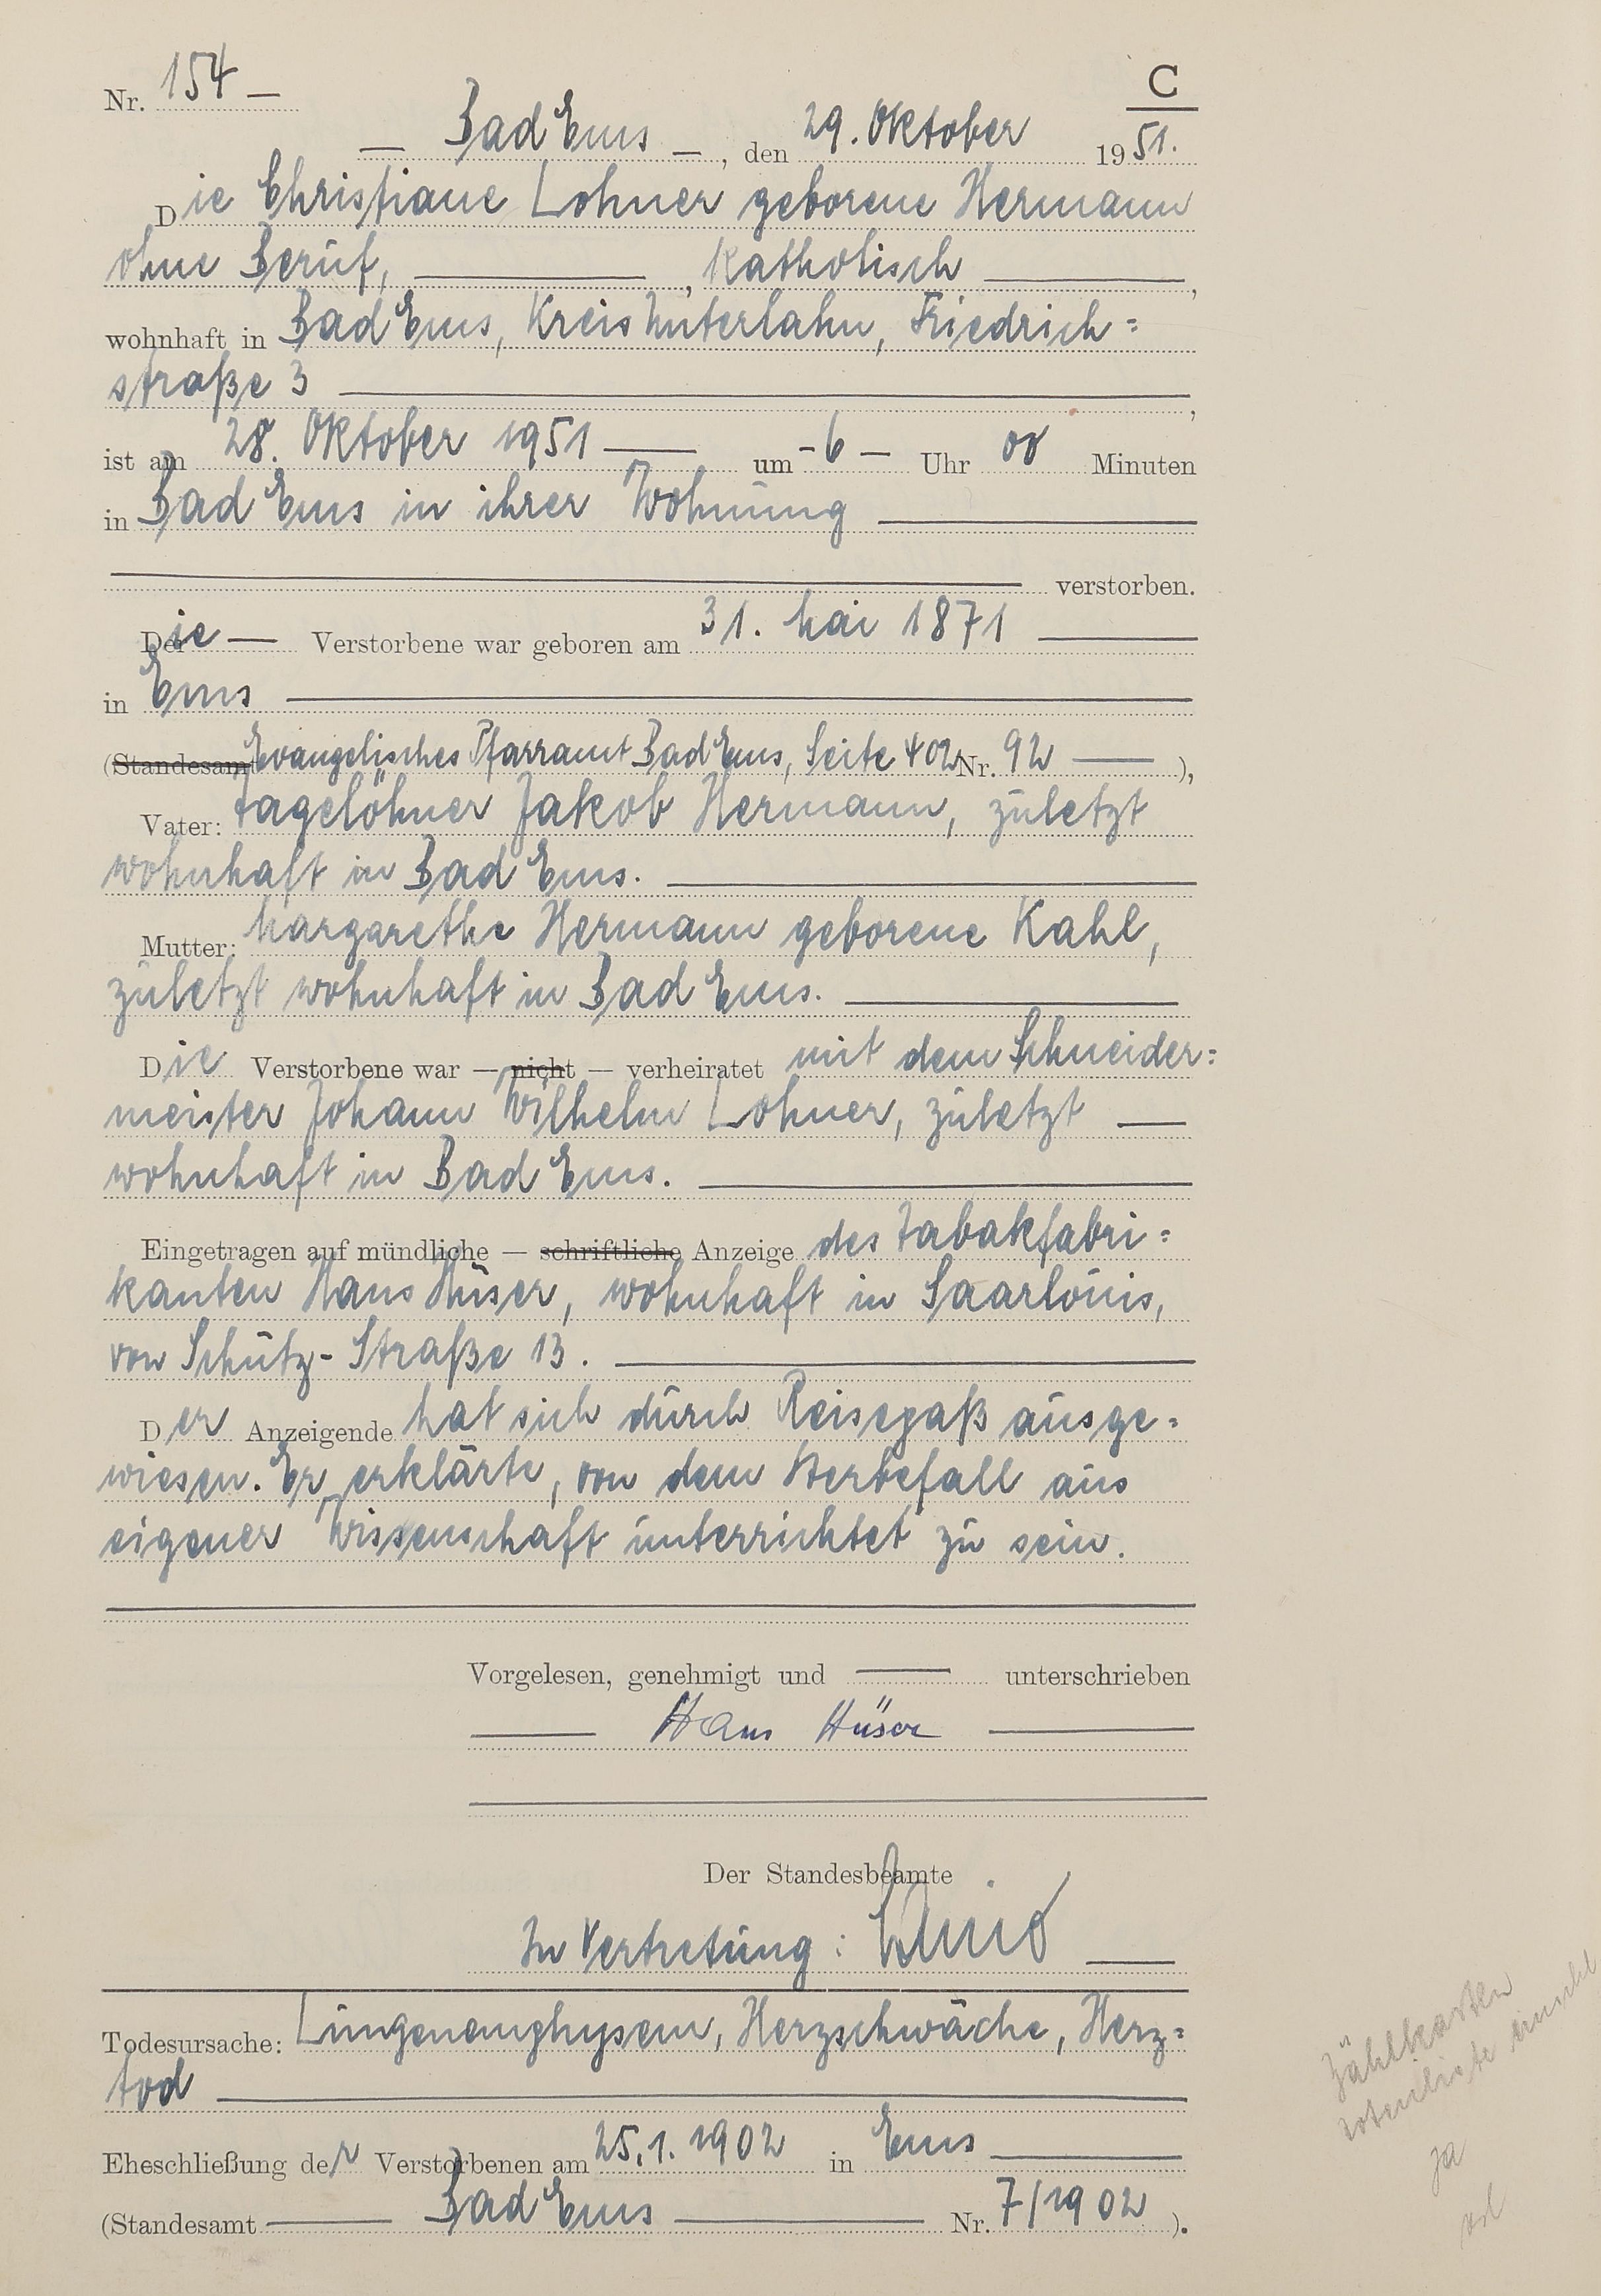 Nr. 154 —
C
— Bad Ems —, den 29. Oktober 1951.
Die Christiane Lohner geborene Hermann
ohne Beruf, ———, katholisch ———,
wohnhaft in Bad Ems, Kreis Unterlahn, Friedrich=
straße 3 ———,
ist am 28. Oktober 1951 —— um - 6 — Uhr 00 Minuten
in Bad Ems in ihrer Wohnung ———
——— verstorben.
Die — Verstorbene war geboren am 31. Mai 1871 ———
in Ems ———
(Standesamt Evangelisches Pfarramt Bad Ems, Seite 402 Nr. 92 —— ),
Vater: Tagelöhner Jakob Hermann, zuletzt
wohnhaft in Bad Ems. ———
Mutter: Margarethe Hermann geborene Kahl,
zuletzt wohnhaft in Bad Ems. ———
Die Verstorbene war — nicht — verheiratet mit dem Schneider=
meister Johann Wilhelm Lohner, zuletzt —
wohnhaft in Bad Ems. ———
Eingetragen auf mündliche — schriftliche Anzeige des Tabakfabri=
kanten Hans Hüser, wohnhaft in Saarlouis,
von Schütz-Straße 13. ———
Der Anzeigende hat sich durch Reisepaß ausge=
wiesen. Er erklärte, von dem Sterbefall aus
eigener Wissenschaft unterrichtet zu sein.
Vorgelesen, genehmigt und —— unterschrieben
—— Hans Hüser ——
Der Standesbeamte
In Vertretung:
Todesursache: Lungenemphysem, Herzschwäche, Herz=
tod ———
Eheschließung der Verstorbenen am 25.1.1902 in Ems ———
(Standesamt —— Bad Ems —— Nr. 7/1902 ).
Zählkarten
ja